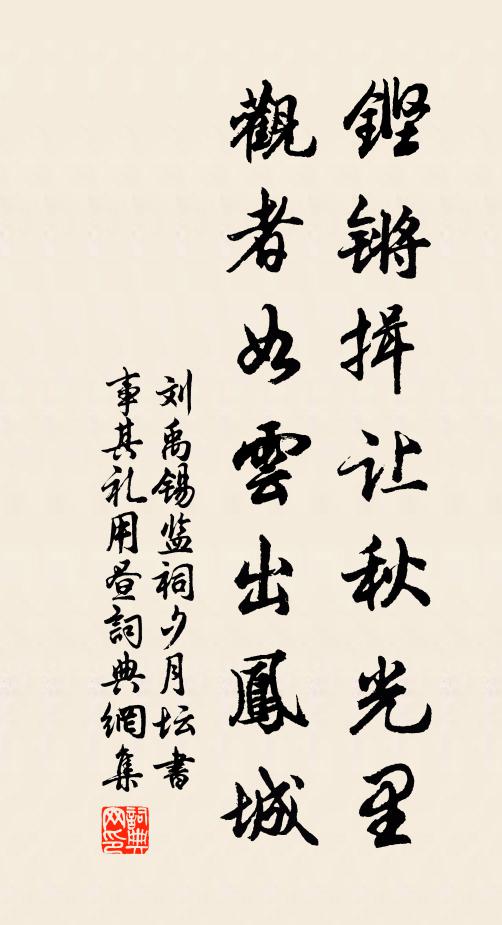 鏗锵揖让秋光里
觀者如雲出鳳城
刘禹锡监祠夕月坛書
事其礼用昼詞典網集
詞典网印